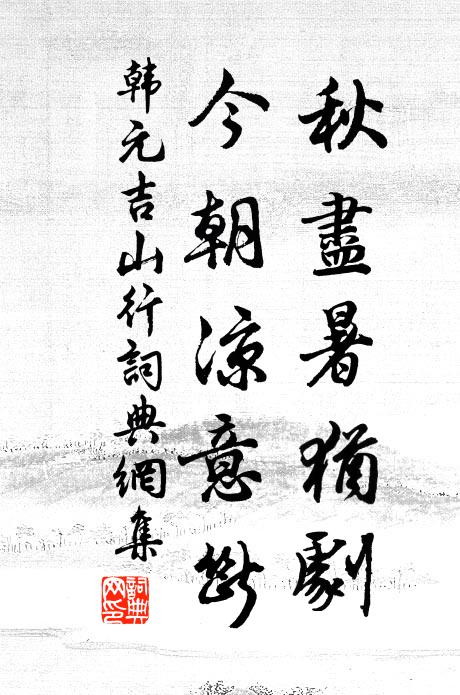 秋盡暑猶劇
今朝涼意
韓元吉山行詞典網集
詞典网印